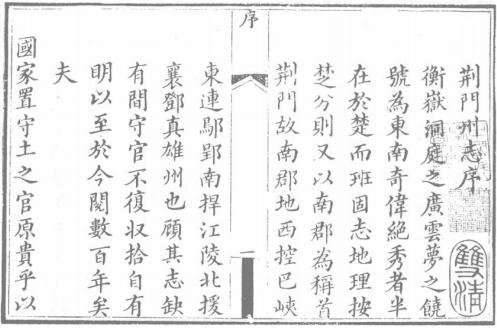 荊門州志序
衡嶽洞庭之廣雲夢之饒
號為東南奇偉絕秀者半
在於楚而班固志地理按
楚分則又以南郡為稱首
荊門故南郡地西控巴峽
序
一
東連鄢郢南捍江陵北援
襄鄧真雄州也顧其志缺
有間守官不復収拾自有
明以至於今閱數百年矣
夫
國家置守土之官原貴乎以